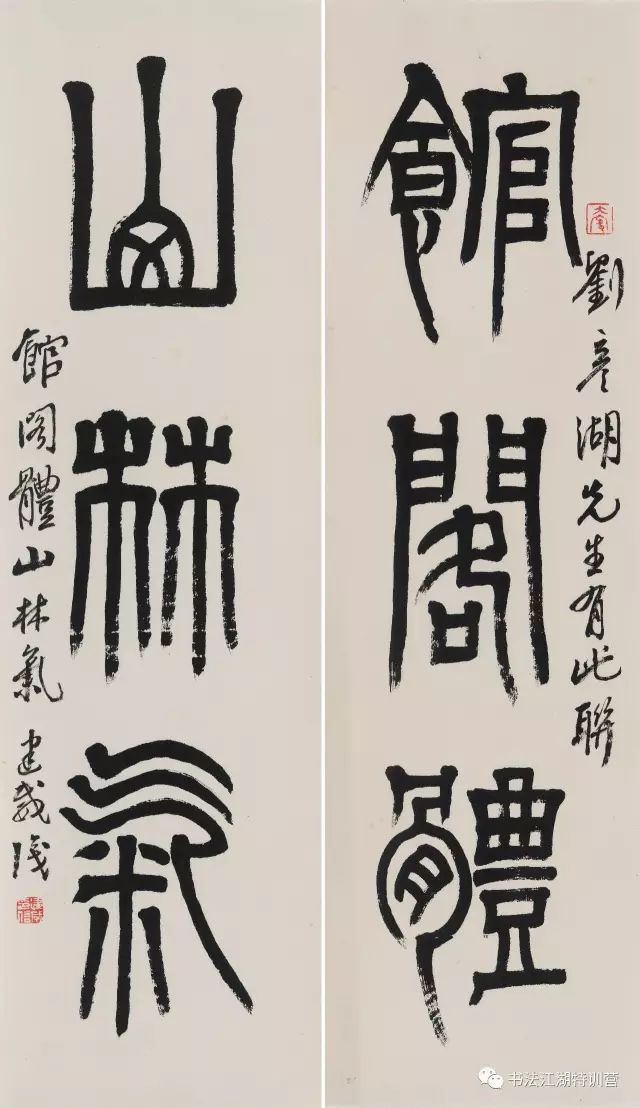 館閣體
劉彥湖先生有此聯
山林氣
館閣體山林氣
书法江湖特训营